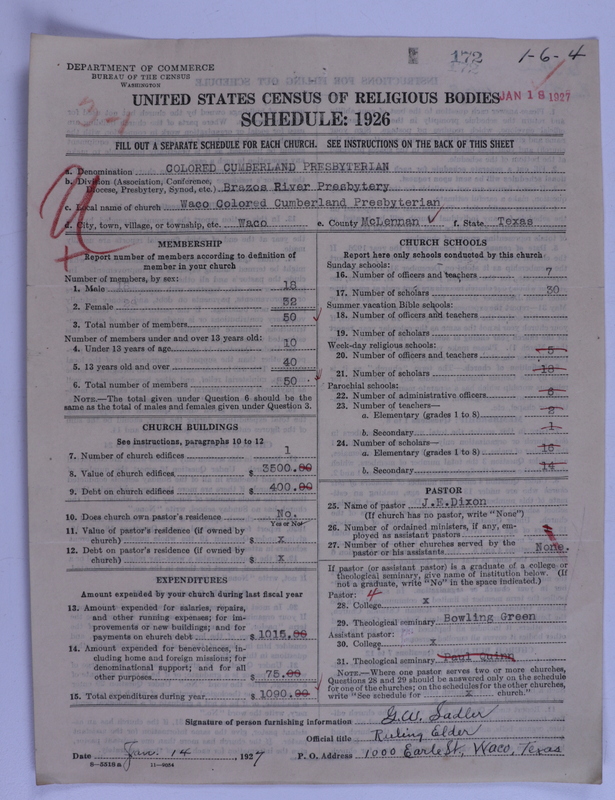 172
1-6-4
DEPARTMENT OF COMMERCE
BUREAU OF THE CENSUS
WASHINGTON
UNITED STATES CENSUS OF RELIGIOUS BODIES
JAN 18 1927
SCHEDULE: 1926
FILL OUT A SEPARATE SCHEDULE FOR EACH CHURCH. SEE INSTRUCTIONS ON THE BACK OF THIS SHEET
a. Denomination COLORED CUMBERLAND PRESBYTERIAN
b. Division (Association, Conference, Diocese, Presbytery, Synod, etc.) Brazos River Presbytery
c. Local name of church Waco Colored Cumberland Presbyterian
d. City, town, village, or township, etc. Waco e. County McLennan f. State Texas
MEMBERSHIP
Report number of members according to definition of
member in your church
Number of members, by sex:
1. Male 18
2. Female 32
3. Total number of members 50
Number of members under and over 13 years old:
4. Under 13 years of age 10
5. 13 years old and over 40
6. Total number of members 50
NOTE.—The total given under Question 6 should be the
same as the total of males and females given under Question 3.
CHURCH BUILDINGS
See instructions, paragraphs 10 to 12
7. Number of church edifices 1
8. Value of church edifices $ 3500.00
9. Debt on church edifices $ 400.00
10. Does church own pastor's residence No.
Yes or No
11. Value of pastor's residence (if owned by
church) $ x
12. Debt on pastor's residence (if owned by
church) $ x
EXPENDITURES
Amount expended by your church during last fiscal year
13. Amount expended for salaries, repairs,
and other running expenses; for im-
provements or new buildings; and for
payments on church debt $ 1015.00
14. Amount expended for benevolences, in-
cluding home and foreign missions; for
denominational support; and for all
other purposes $ 75.00
15. Total expenditures during year $ 1090.00
CHURCH SCHOOLS
Report here only schools conducted by this church
Sunday schools:
16. Number of officers and teachers 7
17. Number of scholars 30
Summer vacation Bible schools:
18. Number of officers and teachers
19. Number of scholars
Week-day religious schools:
20. Number of officers and teachers 5
21. Number of scholars 18
Parochial schools:
22. Number of administrative officers 6
23. Number of teachers—
a. Elementary (grades 1 to 8) 2
b. Secondary 1
24. Number of scholars—
a. Elementary (grades 1 to 8) 16
b. Secondary 14
PASTOR
25. Name of pastor J.E.Dixon
(If church has no pastor, write "None")
26. Number of ordained ministers, if any, em-
ployed as assistant pastors
27. Number of other churches served by the
pastor or his assistants None.
If pastor (or assistant pastor) is a graduate of a college or
theological seminary, give name of institution below. (If
not a graduate, write "No" in the space indicated.)
Pastor: 4
28. College x
29. Theological seminary Bowling Green
Assistant pastor:
30. College x
31. Theological seminary Paul Quinn
NOTE.—Where one pastor serves two or more churches,
Questions 28 and 29 should be answered only on the schedule
for one of the churches; on the schedules for the other churches,
write "See schedule for x church."
Signature of person furnishing information G.W. Sadler
Official title Ruling Elder
Date Jan. 14, 1927 P. O. Address 1000 Earle St, Waco, Texas
8—5518 a 11—9024